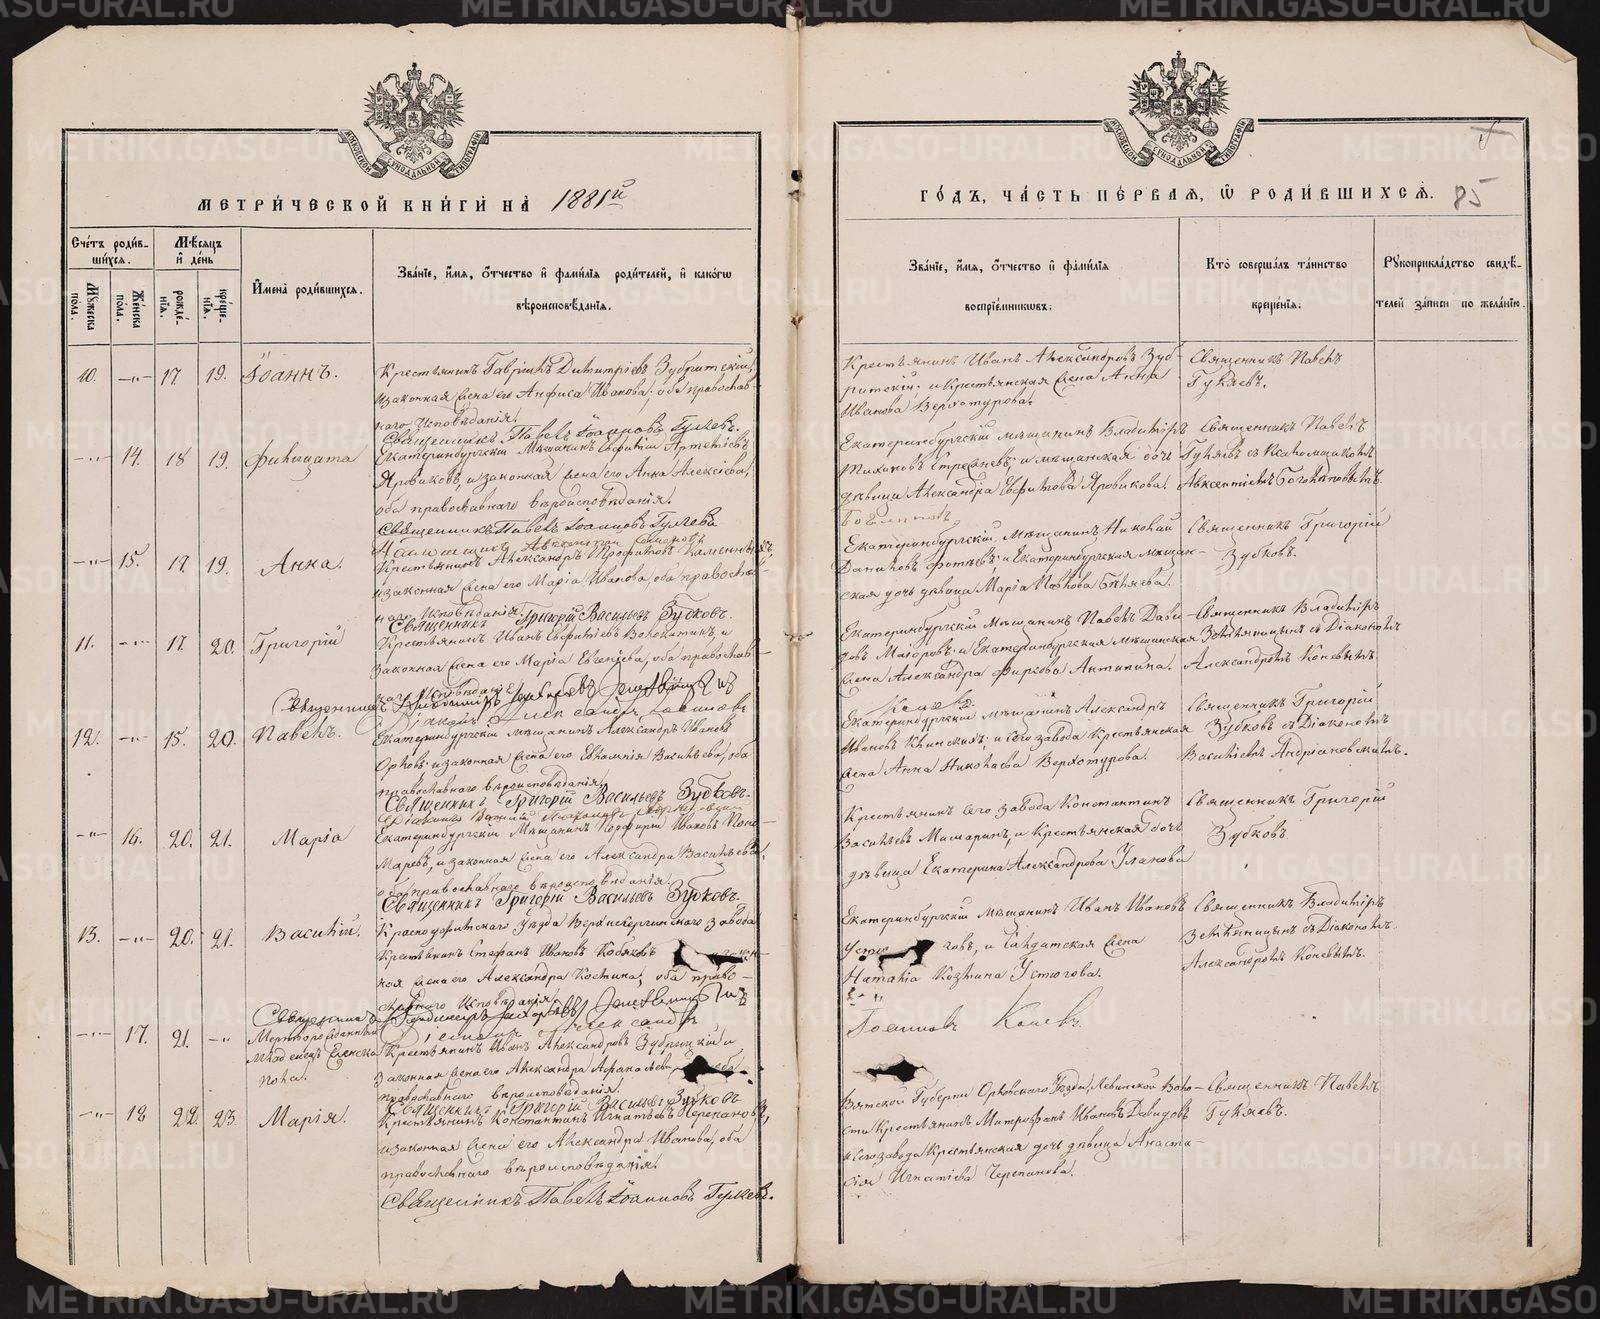 МЕТРИ́ЧЕСКОЙ КНИ́ГИ НА́ 1881й
Сче́тъ роди́в-
ши́хсѧ.
Мѣ́сѧцъ
и҆ де́нь
Мꙋ́жеска
по́ла.
Же́нска
по́ла.
рожде́-
нїѧ.
креще́-
нїѧ.
И҆мена̀ роди́вшихсѧ.
Зва́нїе, и҆́мѧ, ѻ҆́тчество и҆ фами́лїѧ роди́телей, и҆ како́гѡ
вѣроисповѣ́данїѧ.
10. —„— 17 19. Іоаннъ.
Крестьянинъ Гавріилъ Димитріевъ Зубритскій,
и законная жена его Анфиса Иванова; оба православ-
наго Исповѣданія.
Священникъ Павелъ Іоанновъ Гуляевъ.
—„— 14. 18 19. Фелицата
Екатеринбургскій Мѣщанинъ Евфимій Артеміевъ
Яровиковъ, и законная жена его Анна Алексіева,
оба православнаго вѣроисповѣданія.
Священникъ Павелъ Іоанновъ Гуляевъ
—„— 15. 19. 19. Анна.
Крестьянинъ Александръ Трофимовъ
и законная жена его Марія Иванова, оба православ-
наго Исповѣданія.
Священникъ Григорій Васильевъ Зубковъ.
11. —„— 17. 20. Григорій
Крестьянинъ Иванъ Евфиміевъ и
законная жена его Марія Евгеніева, оба православ-
наго Исповѣданія
Священникъ
12. —„— 15. 20. Павелъ.
Екатеринбургскій мѣщанинъ Александръ Ивановъ
Орловъ и законная жена его Евѳимія Васильева, оба
православнаго вѣроисповѣданія.
Священникъ Григорій Васильевъ Зубковъ.
—„— 16. 20. 21. Марія
Екатеринбургскій Мѣщанинъ Порфирій Ивановъ Поно-
маревъ, и законная жена его Александра Васильева,
оба православнаго вѣроисповѣданія.
Священникъ Григорій Васильевъ Зубковъ.
13. —„— 20. 21. Василій.
Красноуфимскаго Уѣзда Верхнесергинскаго завода
крестьянинъ Стефанъ Ивановъ Кобяковъ
ная жена его Александра Костина, оба право-
славнаго Исповѣданія
Священникъ
—„— 17. 21. —„—
Мертворожденный
младенецъ женска
пола.
Крестьянинъ Иванъ Александровъ Зубрицкій и
законная жена его Александра Афанасьева оба
православнаго вѣроисповѣданія.
Священникъ Григорій Васильевъ Зубковъ
—„— 18 22. 23. Марія.
Крестьянинъ Константинъ Игнатьевъ Черепановъ,
и законная жена его Александра Иванова, оба
православнаго вѣроисповѣданія.
Священникъ Павелъ Іоанновъ Гуляевъ.
ГО́ДЪ, ЧА́СТЬ ПЕ́РВАѦ, Ѡ҆ РОДИ́ВШИХСѦ. 85
Зва́нїе, и҆́мѧ, ѻ҆́тчество и҆ фами́лїѧ
воспрїе́мникѡвъ.
Кто̀ соверша́лъ та́инство
креще́нїѧ.
Рꙋкоприкла́дство свидѣ́-
телей за́писи по жела́нїю.
Крестьянинъ Иванъ Александровъ Зуб-
ритскій; и крестьянская жена Анна
Иванова Верхотурова.
Священникъ Павелъ
Гуляевъ.
Екатеринбургскій мѣщанинъ Владиміръ
Тихоновъ Стрежневъ; и мѣщанская дочь
дѣвица Александра Евфимова Яровикова.
Священникъ Павелъ
Гуляевъ съ Псаломщикомъ
Авксентіемъ Боголѣповымъ.
Екатеринбургскій Мѣщанинъ Николай
Даниловъ и Екатеринбургская мѣщан-
ская дочь дѣвица Марія Павлова Бѣляева.
Священникъ Григорій
Зубковъ.
Екатеринбургскій Мѣщанинъ Павелъ Дави-
довъ Маіоровъ и Екатеринбургская мѣщанская
жена Александра Фирсова Антипина.
Священникъ Владиміръ
Земляницынъ съ Діакономъ
Александромъ Коневымъ.
Коневъ
Екатеринбургскій мѣщанинъ Александръ
Ивановъ Клинскихъ; и сего завода крестьянская
жена Анна Николаева Верхотурова.
Священникъ Григорій
Зубковъ съ Діакономъ
Василіемъ Андріановскимъ.
Крестьянинъ сего завода Константинъ
Васильевъ Мишаринъ, и крестьянская дочь
дѣвица Екатерина Александрова Уланова
Священникъ Григорій
Зубковъ
Екатеринбургскій мѣщанинъ Иванъ Ивановъ
Устю говъ, и Солдатская жена
Наталія Козмина Устюгова.
Священникъ Владиміръ
Земляницынъ съ Діакономъ
Александромъ Коневымъ.
Іоанновъ Коневъ
Вятской Губерніи Орловскаго Уѣзда, Левинской Воло-
сти Крестьянинъ Митрофанъ Ивановъ Давидовъ
и сего завода Крестьянская дочь дѣвица Анаста-
сія Игнатіева Черепанова.
Священникъ Павелъ
Гуляевъ.